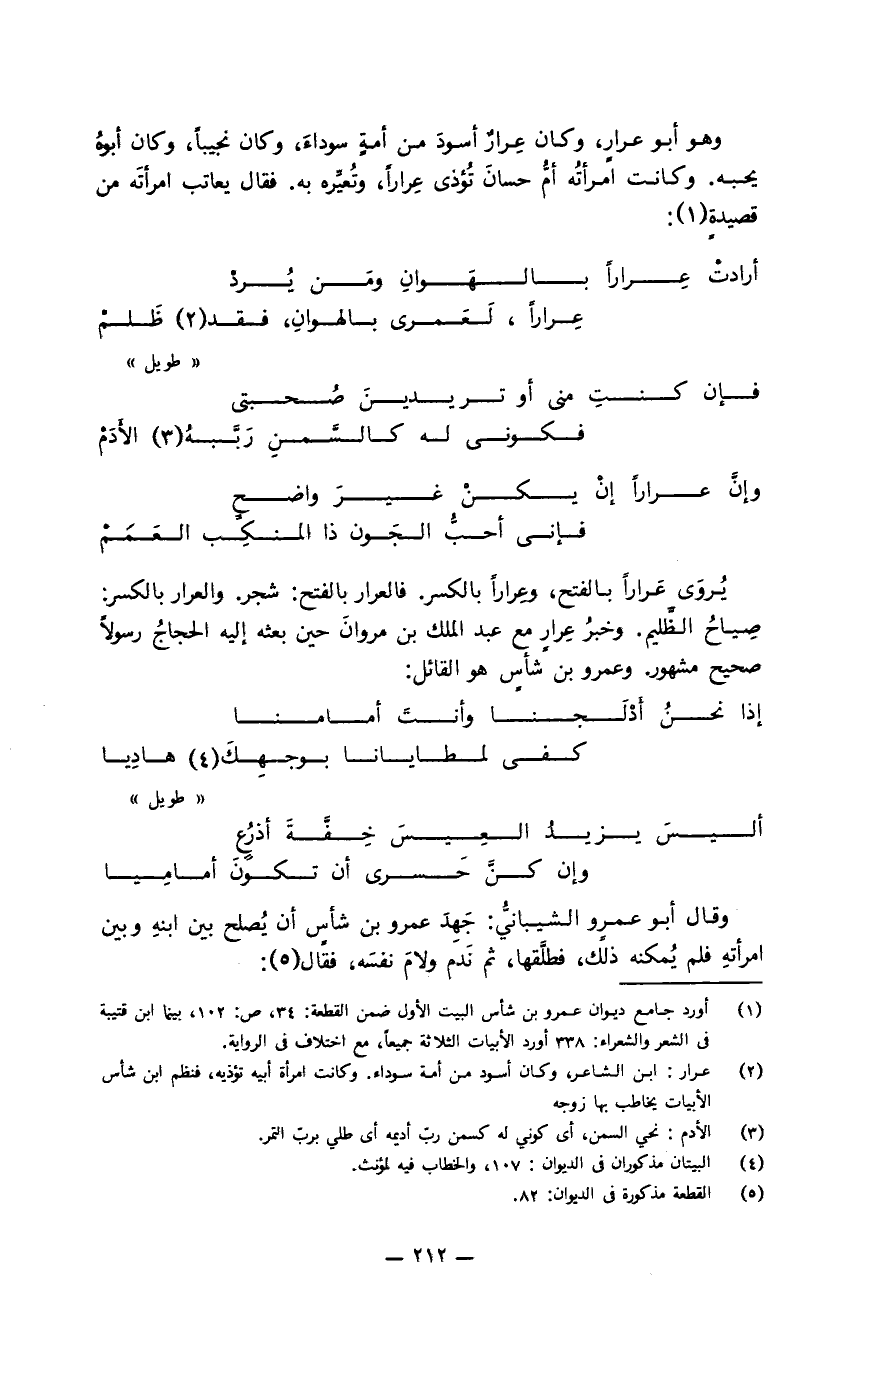 وهو أبو عرارٍ، وكان عِرارٌ أسودَ من أمةٍ سوداءَ، وكان نجيباً، وكان أبوهُ
يحبه. وكانت امرأتُه أمُّ حسانَ تُؤذى عِراراً، وتُعيِّره به. فقال يعاتب امرأتَه من
قصيدةٍ(١):
أرادتْ عِراراً بالهَوانِ ومَن يُرِدْ
عِراراً ، لَعَمرى بالهوانِ، فقد(٢) ظَلمْ
« طويل »
فإن كنتِ منى أو تريدينَ صُحبتى
فكونى له كالسَّمنِ رَبَّبهُ(٣) الأَدَمْ
وإنَّ عراراً إنْ يكنْ غيرَ واضحٍ
فإنى أحبُّ الجَون ذا المنكِب العَمَمْ
يُروَى عَراراً بالفتح، وعِراراً بالكسر. فالعرار بالفتح: شجر. والعرار بالكسر:
صِياحُ الظَّليم. وخبرُ عِرارٍ مع عبد الملك بن مروانَ حين بعثه إليه الحجاجُ رسولاً
صحيح مشهور. وعمرو بن شأسٍ هو القائل:
إذا نحنُ أَدْلَجنا وأنتَ أمامنا
كفى لمطايانا بوجهِكَ(٤) هادِيا
« طويل »
أليسَ يزيدُ العِيسَ خِفَّةَ أذرُعٍ
وإن كنَّ حَسرى أن تكونَ أمامِيا
وقال أبو عمرٍو الشيبانيُّ: جَهِدَ عمرو بن شأسٍ أن يُصلح بين ابنهِ وبين
امرأتهِ فلم يُمكنه ذلك، فطلَّقها، ثم نَدم ولامَ نفسَه، فقال(٥):
(١) أورد جامع ديوان عمرو بن شأس البيت الأول ضمن القطعة: ٣٤، ص: ١٠٢، بينما ابن قتيبة
فى الشعر والشعراء: ٣٣٨ أورد الأبيات الثلاثة جميعاً، مع اختلاف فى الرواية.
(٢) عرار : ابن الشاعر، وكان أسود من أمة سوداء. وكانت امرأة أبيه تؤذيه، فنظم ابن شأس
الأبيات يخاطب بها زوجه
(٣) الأدم : نحي السمن، أى كوني له كسمن ربّ أديمه أى طلي بربّ التمر.
(٤) البيتان مذكوران فى الديوان : ١٠٧، والخطاب فيه لمؤنث.
(٥) القطعة مذكورة فى الديوان: ٨٢.
— ٢١٢ —